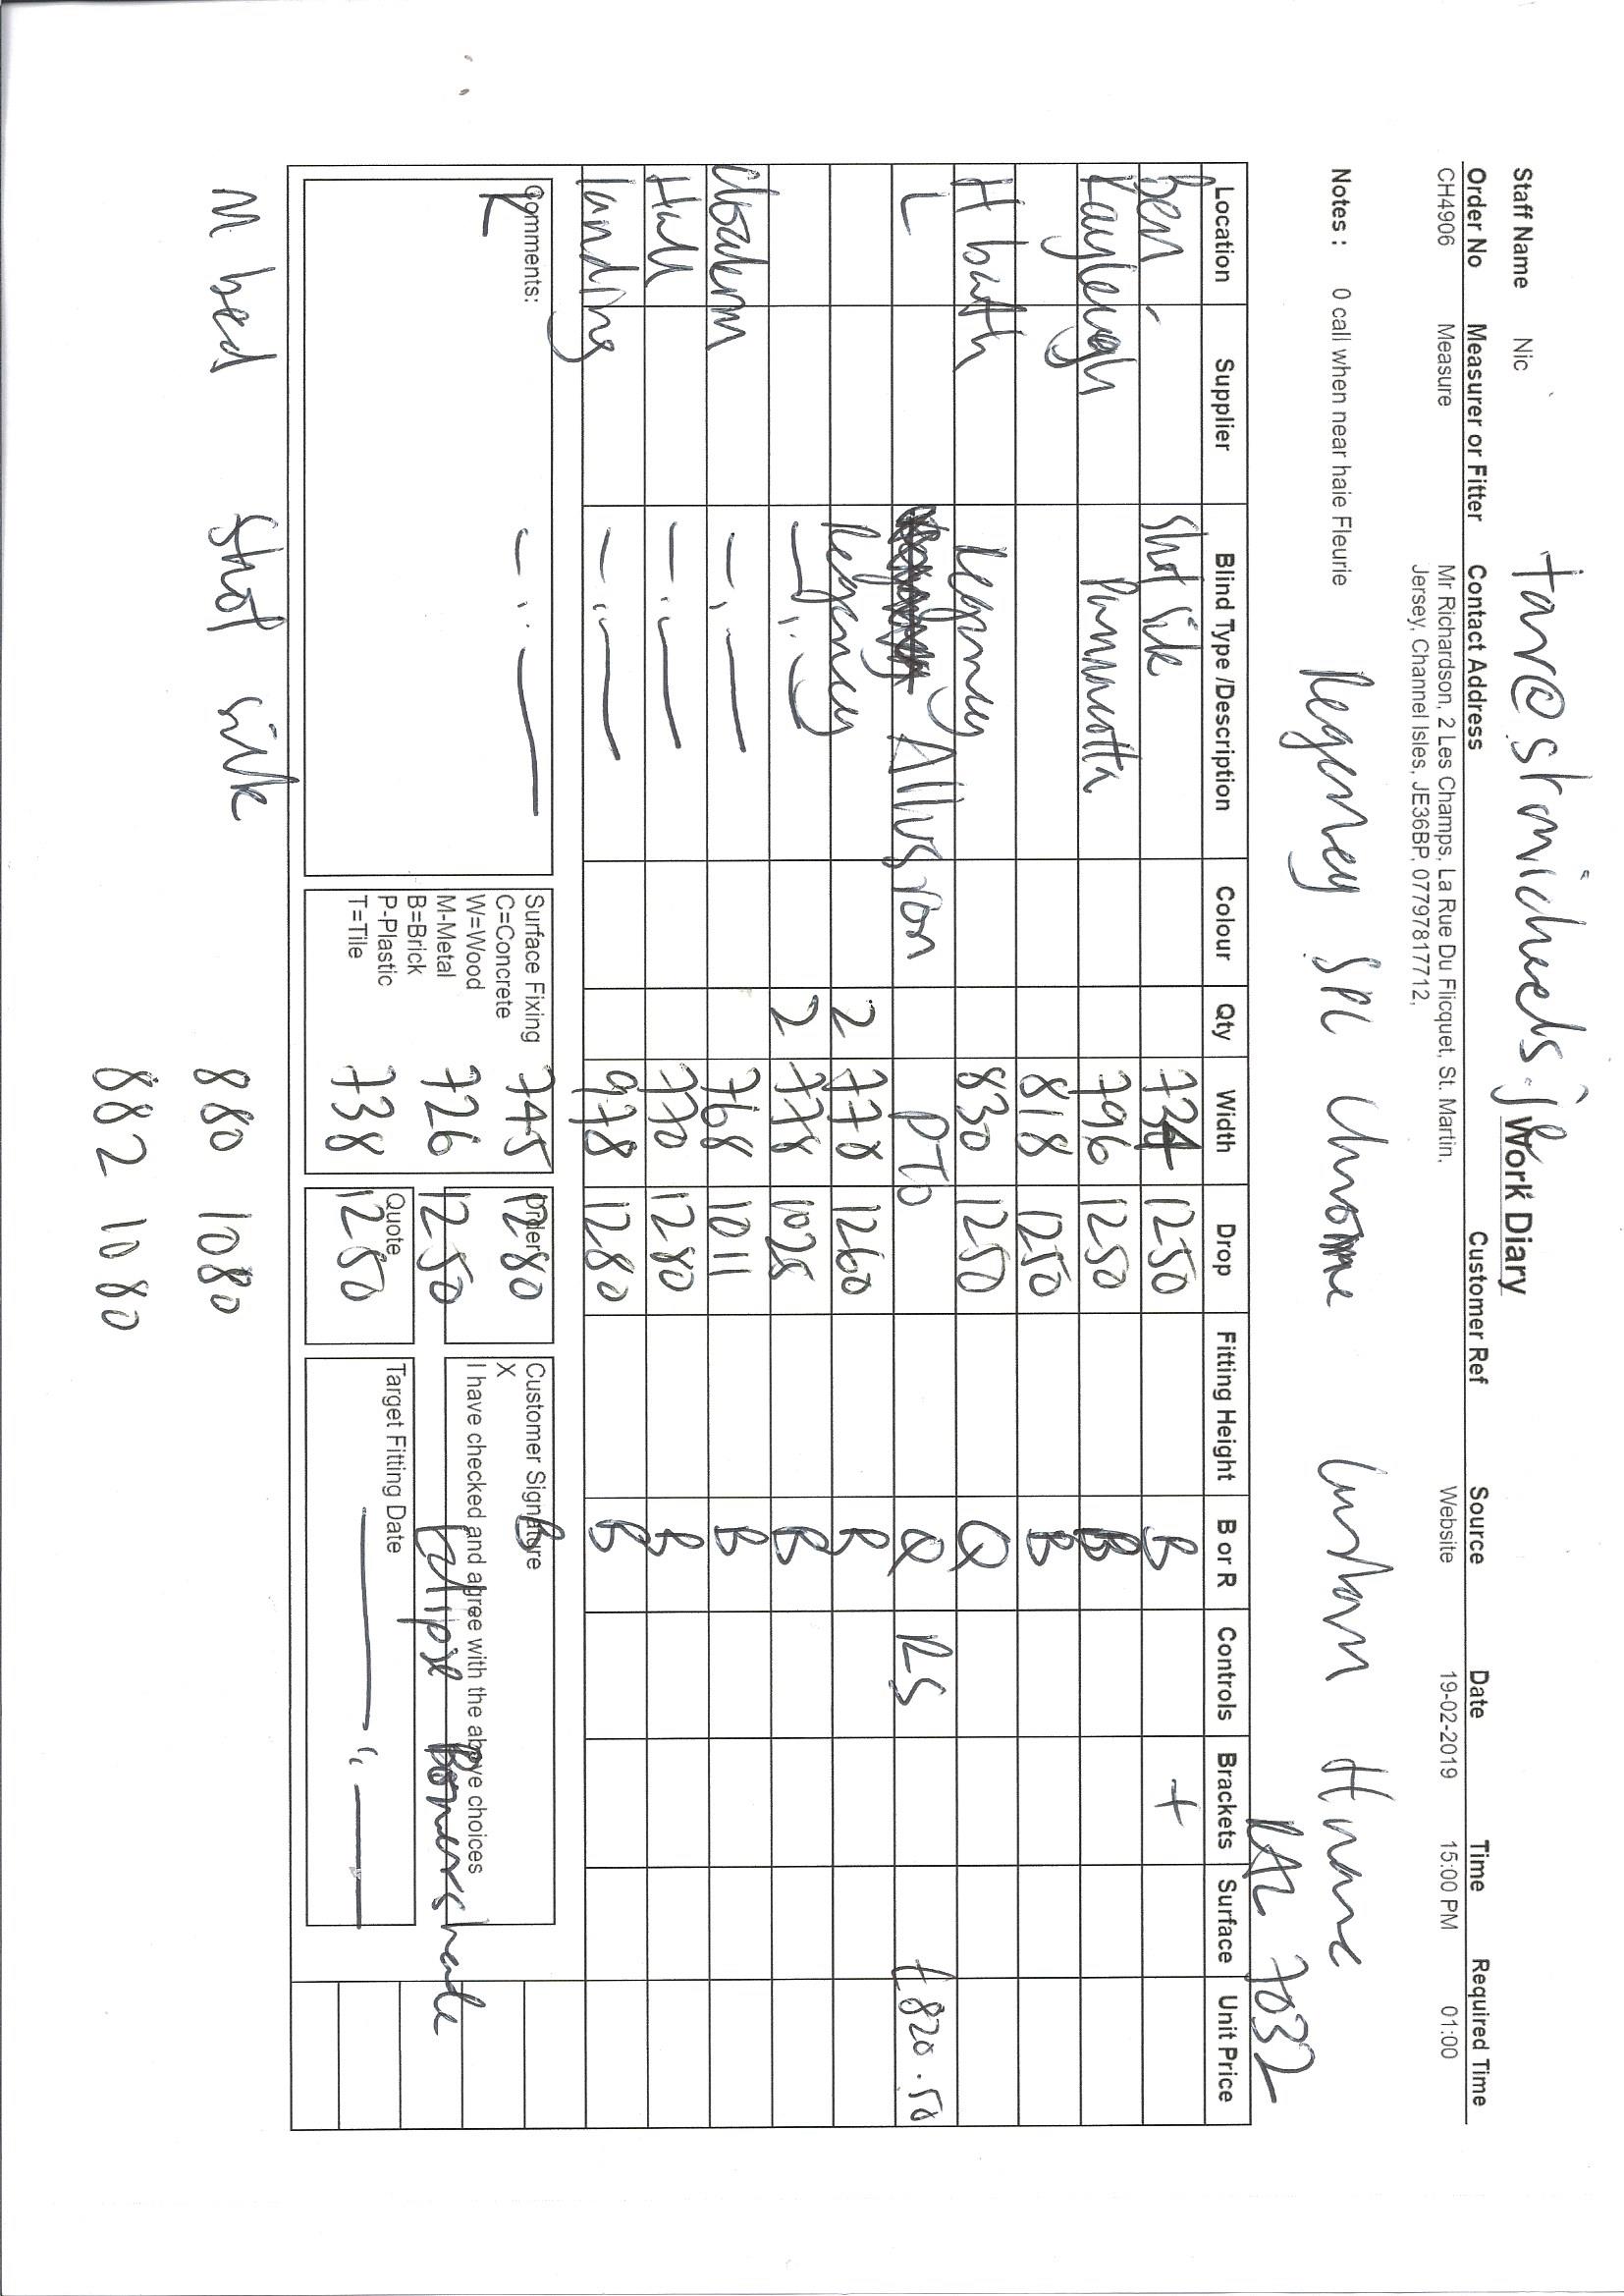 Staff Name Nic
Work Diary
Order No Measurer or Fitter Contact Address Customer Ref Source Date Time Required Time
CH4906 Measure Mr Richardson, 2 Les Champs, La Rue Du Flicquet, St. Martin, Website 19-02-2019 15:00 PM 01:00
Jersey, Channel Isles, JE36BP, 07797817712,
Notes : 0 call when near haie Fleurie
Regency Chrome Custom
RAL 7032
Location Supplier Blind Type /Description Colour Qty Width Drop Fitting Height B or R Controls Brackets Surface Unit Price
Ben shot silk 734 1250 B +
Kayleigh Pannacotta 796 1250 B
818 1250 B
H bath Regency 830 1250 Q
L Allusion PTO Q RS £820.50
Regency 2 778 1260 B
2 778 1028 B
Cloakrm 768 1011 B
Hall 770 1280 B
landing 978 1280 B
Comments: Surface Fixing 745 Order 1280 Customer Signature B
K C=Concrete X
W=Wood I have checked and agree with the above choices
M-Metal 726 1250
B=Brick Quote Target Fitting Date
P-Plastic
T=Tile 738 1250
M bed shot silk 880 1080
882 1080